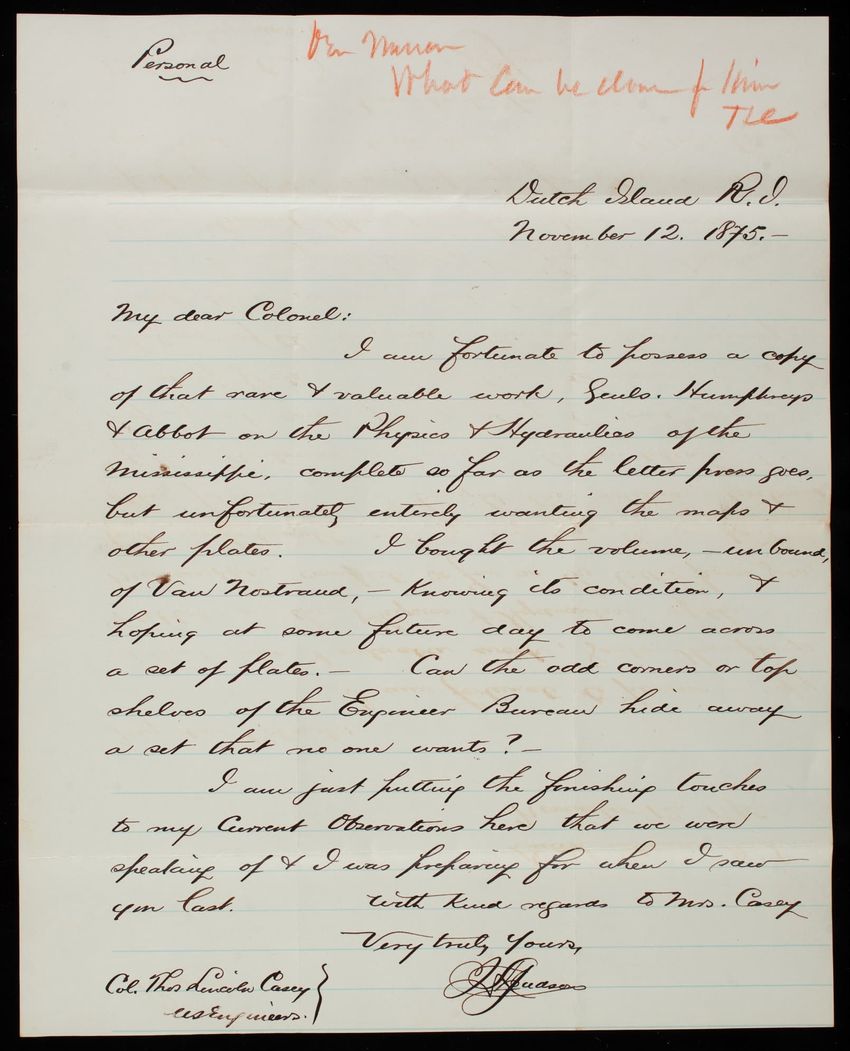 Personal
What can be done for Him
TLC
Dutch Island R.I.
November 12. 1875.—
My dear Colonel:
I am fortunate to possess a copy
of that rare & valuable work, Genls. Humphreys
& Abbot on the Physics & Hydraulics of the
Mississippi, complete so far as the letter press goes,
but unfortunately entirely wanting the maps &
other plates. I bought the volume, — unbound,
of Van Nostrand, — knowing its condition, &
hoping at some future day to come across
a set of plates. — Can the odd corners or top
shelves of the Engineer Bureau hide away
a set that no one wants? —
I am just putting the finishing touches
to my Current Observations here that we were
speaking of & I was preparing for when I saw
you last. With kind regards to Mrs. Casey
Very truly Yours,
Judson
Col. Thos Lincoln Casey
US Engineers.